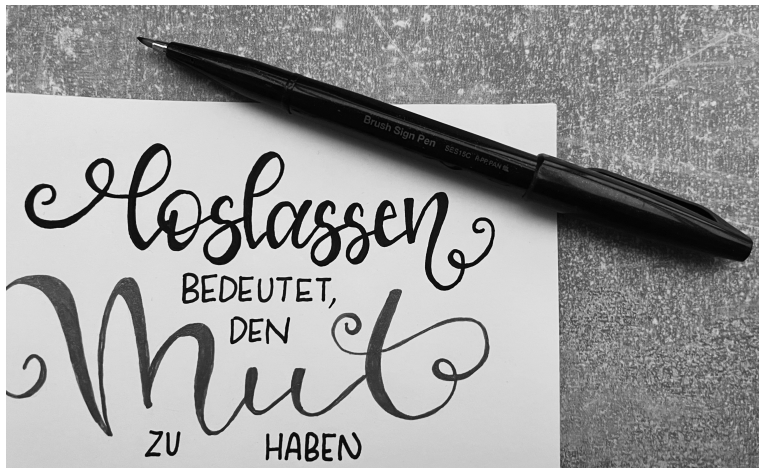 Brush Sign Pen
loslassen
BEDEUTET,
DEN
Mut
ZU HABEN